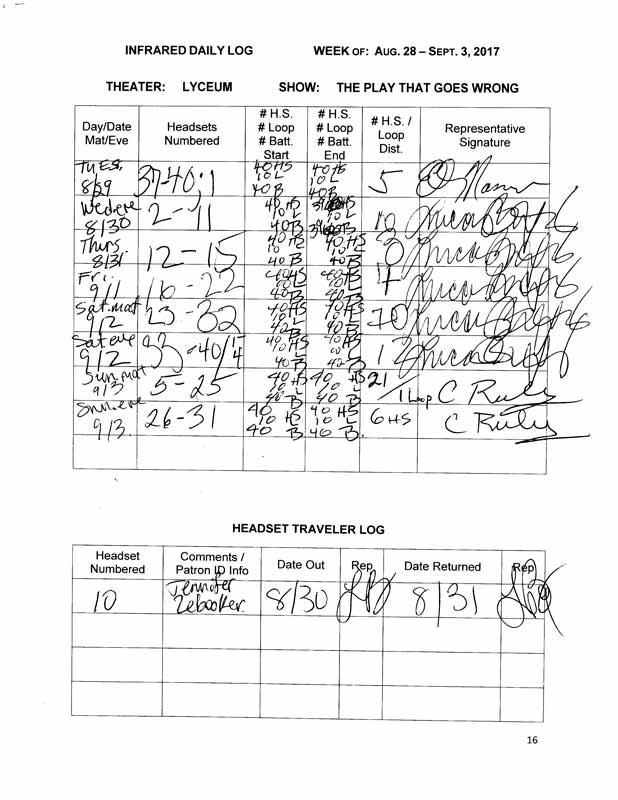 INFRARED DAILY LOG WEEK OF: AUG. 28 – SEPT. 3, 2017
THEATER: LYCEUM SHOW: THE PLAY THAT GOES WRONG
Day/Date Mat/Eve Headsets Numbered # H.S. # Loop # Batt. Start # H.S. # Loop # Batt. End # H.S. / Loop Dist. Representative Signature
TUES. 8/29 37-40;1 40HS 10L 40B 40HS 10L 40B 5
Wed eve 8/30 2-11 40HS 10L 40B 10
Thurs. 8/31 12-15 40HS 10L 40B 40HS 10L 40B
Fri. 9/1 16-22 40HS 10L 40B 40HS 10L 40B
Sat. mat 9/2 23-32 40HS 10L 40HS 10L 40B 10
Sat eve 9/2 33-40/1-4 40HS 10L 40B 40HS 12
Sun mat 9/3 5-25 40HS 40 21/1 Loop C Ruly
Sun eve 9/3 26-31 40HS 10L 40B 40HS 10L 40B 6HS C Ruly
HEADSET TRAVELER LOG
Headset Numbered Comments / Patron ID Info Date Out Rep Date Returned Rep
10 Jennifer 8/30 8/31
16